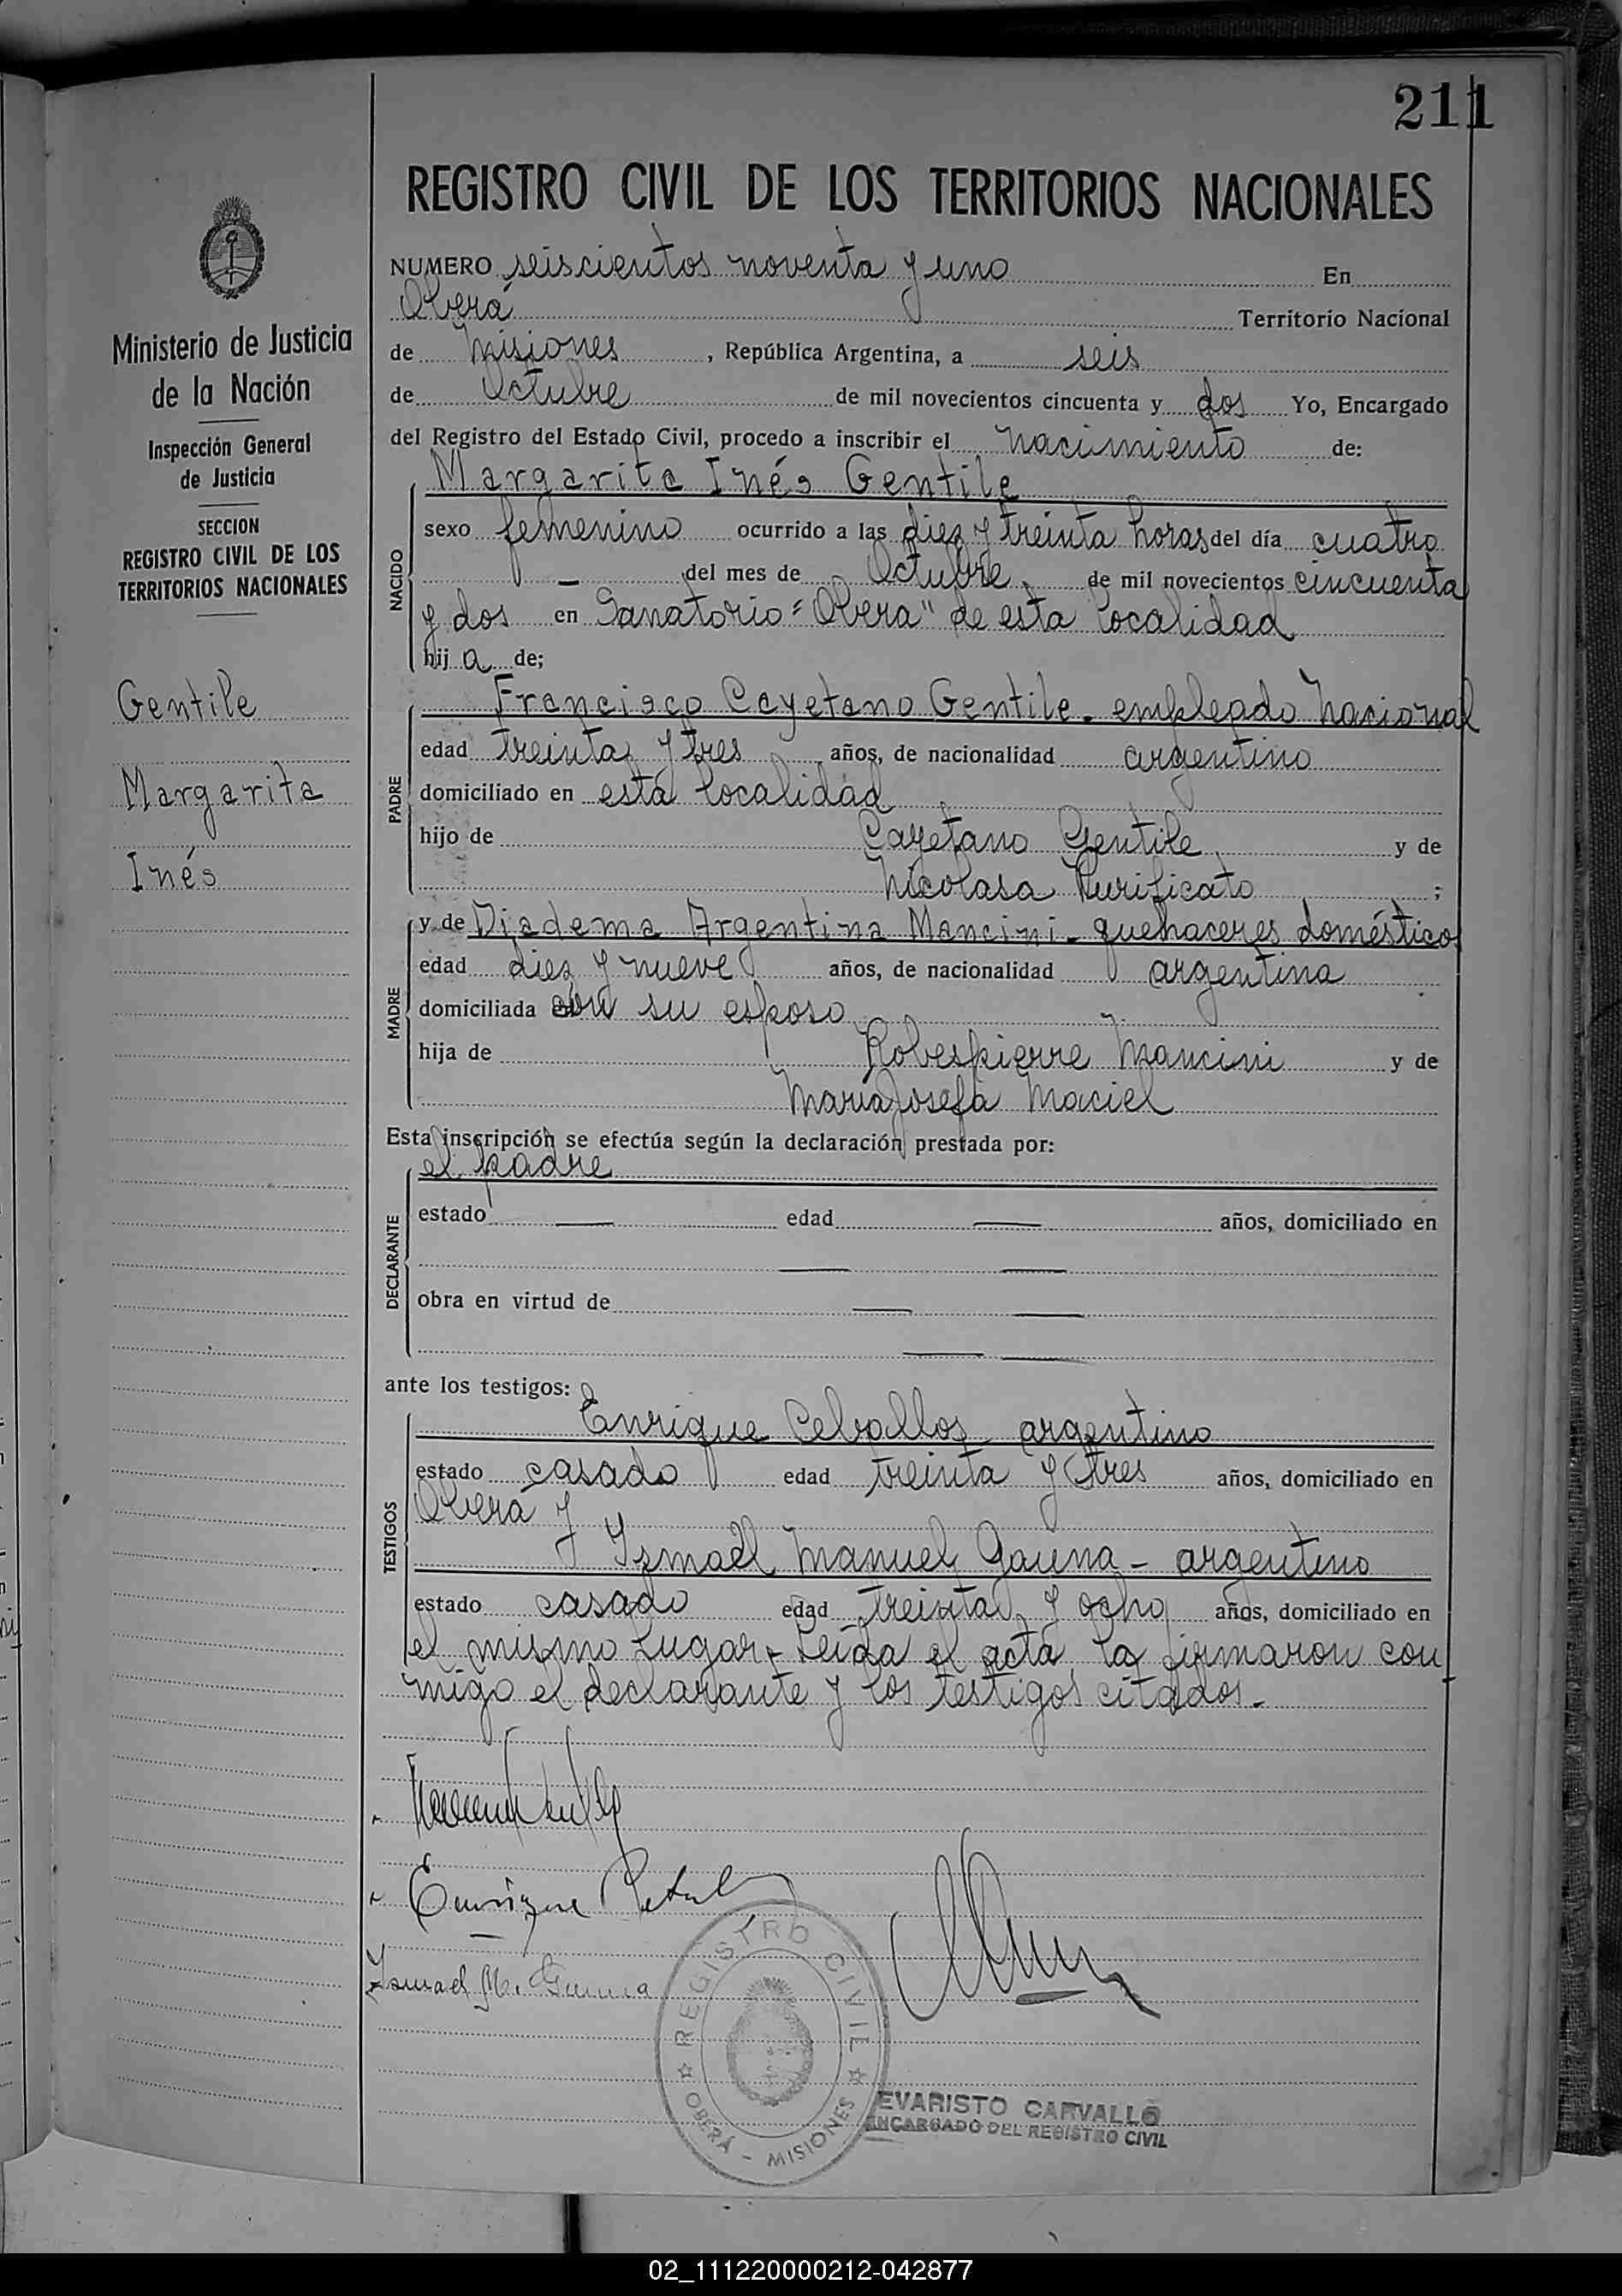 211
REGISTRO CIVIL DE LOS TERRITORIOS NACIONALES
Ministerio de Justicia
de la Nación
Inspección General
de Justicia
SECCION
REGISTRO CIVIL DE LOS
TERRITORIOS NACIONALES
Gentile
Margarita
Inés
NUMERO seiscientos noventa y uno En
Oberá Territorio Nacional
de Misiones, República Argentina, a seis
de Octubre de mil novecientos cincuenta y dos Yo, Encargado
del Registro del Estado Civil, procedo a inscribir el nacimiento de:
Margarita Inés Gentile
NACIDO
sexo femenino ocurrido a las diez y treinta horas del día cuatro
— del mes de Octubre de mil novecientos cincuenta
y dos en Sanatorio "Oberá" de esta localidad
hij a de;
Francisco Cayetano Gentile - empleado Nacional
PADRE
edad treinta y tres años, de nacionalidad argentino
domiciliado en esta localidad
hijo de Cayetano Gentile y de
Nicolasa Purificato ;
y de Diadema Argentina Mancini - quehaceres domésticos
MADRE
edad diez y nueve años, de nacionalidad argentina
domiciliada con su esposo
hija de Robespierre Mancini y de
María Josefa Maciel
Esta inscripción se efectúa según la declaración prestada por:
el padre
DECLARANTE
estado — edad — años, domiciliado en
— —
obra en virtud de — —
— —
ante los testigos:
Enrique Ceballos argentino
TESTIGOS
estado casado edad treinta y tres años, domiciliado en
Oberá y
Ismael Manuel Gauna - argentino
estado casado edad treinta y ocho años, domiciliado en
el mismo lugar - Leída el acta, la firmaron con
migo el declarante y los testigos citados.-
Enrique
Ismael M. Gauna
REGISTRO CIVIL
OBERÁ - MISIONES
EVARISTO CARVALLO
ENCARGADO DEL REGISTRO CIVIL
02_111220000212-042877